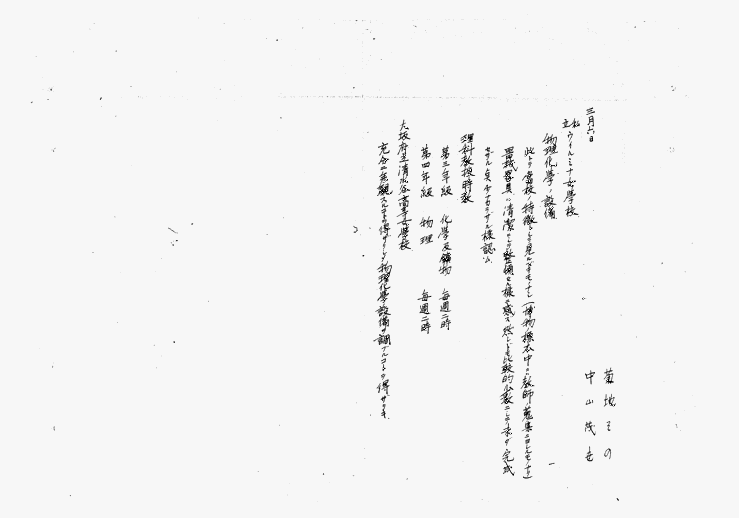 三月六日
菊地その
中山茂
私立ウイルミナ女學校
物理化學ノ設備
此レゾ當校ノ特徴トシテ見ルベキモノナシ(博物標本中ニハ教師ノ蒐集ニヨレルモノナリ)
器械器具ハ清潔ニシテ整頓セル様ニ感ズ然レドモ比較的少數ニシテ未ダ完成
セザル点少ナカラザル様認ム
理科教授時數
第三年級 化學及鑛物 毎週二時
第四年級 物理 毎週二時
大坂府立清水谷高等女學校
充分ニ参観スルヲ得ザリシ物理化學ノ設備ヲ調ブルコトヲ得ザリキ